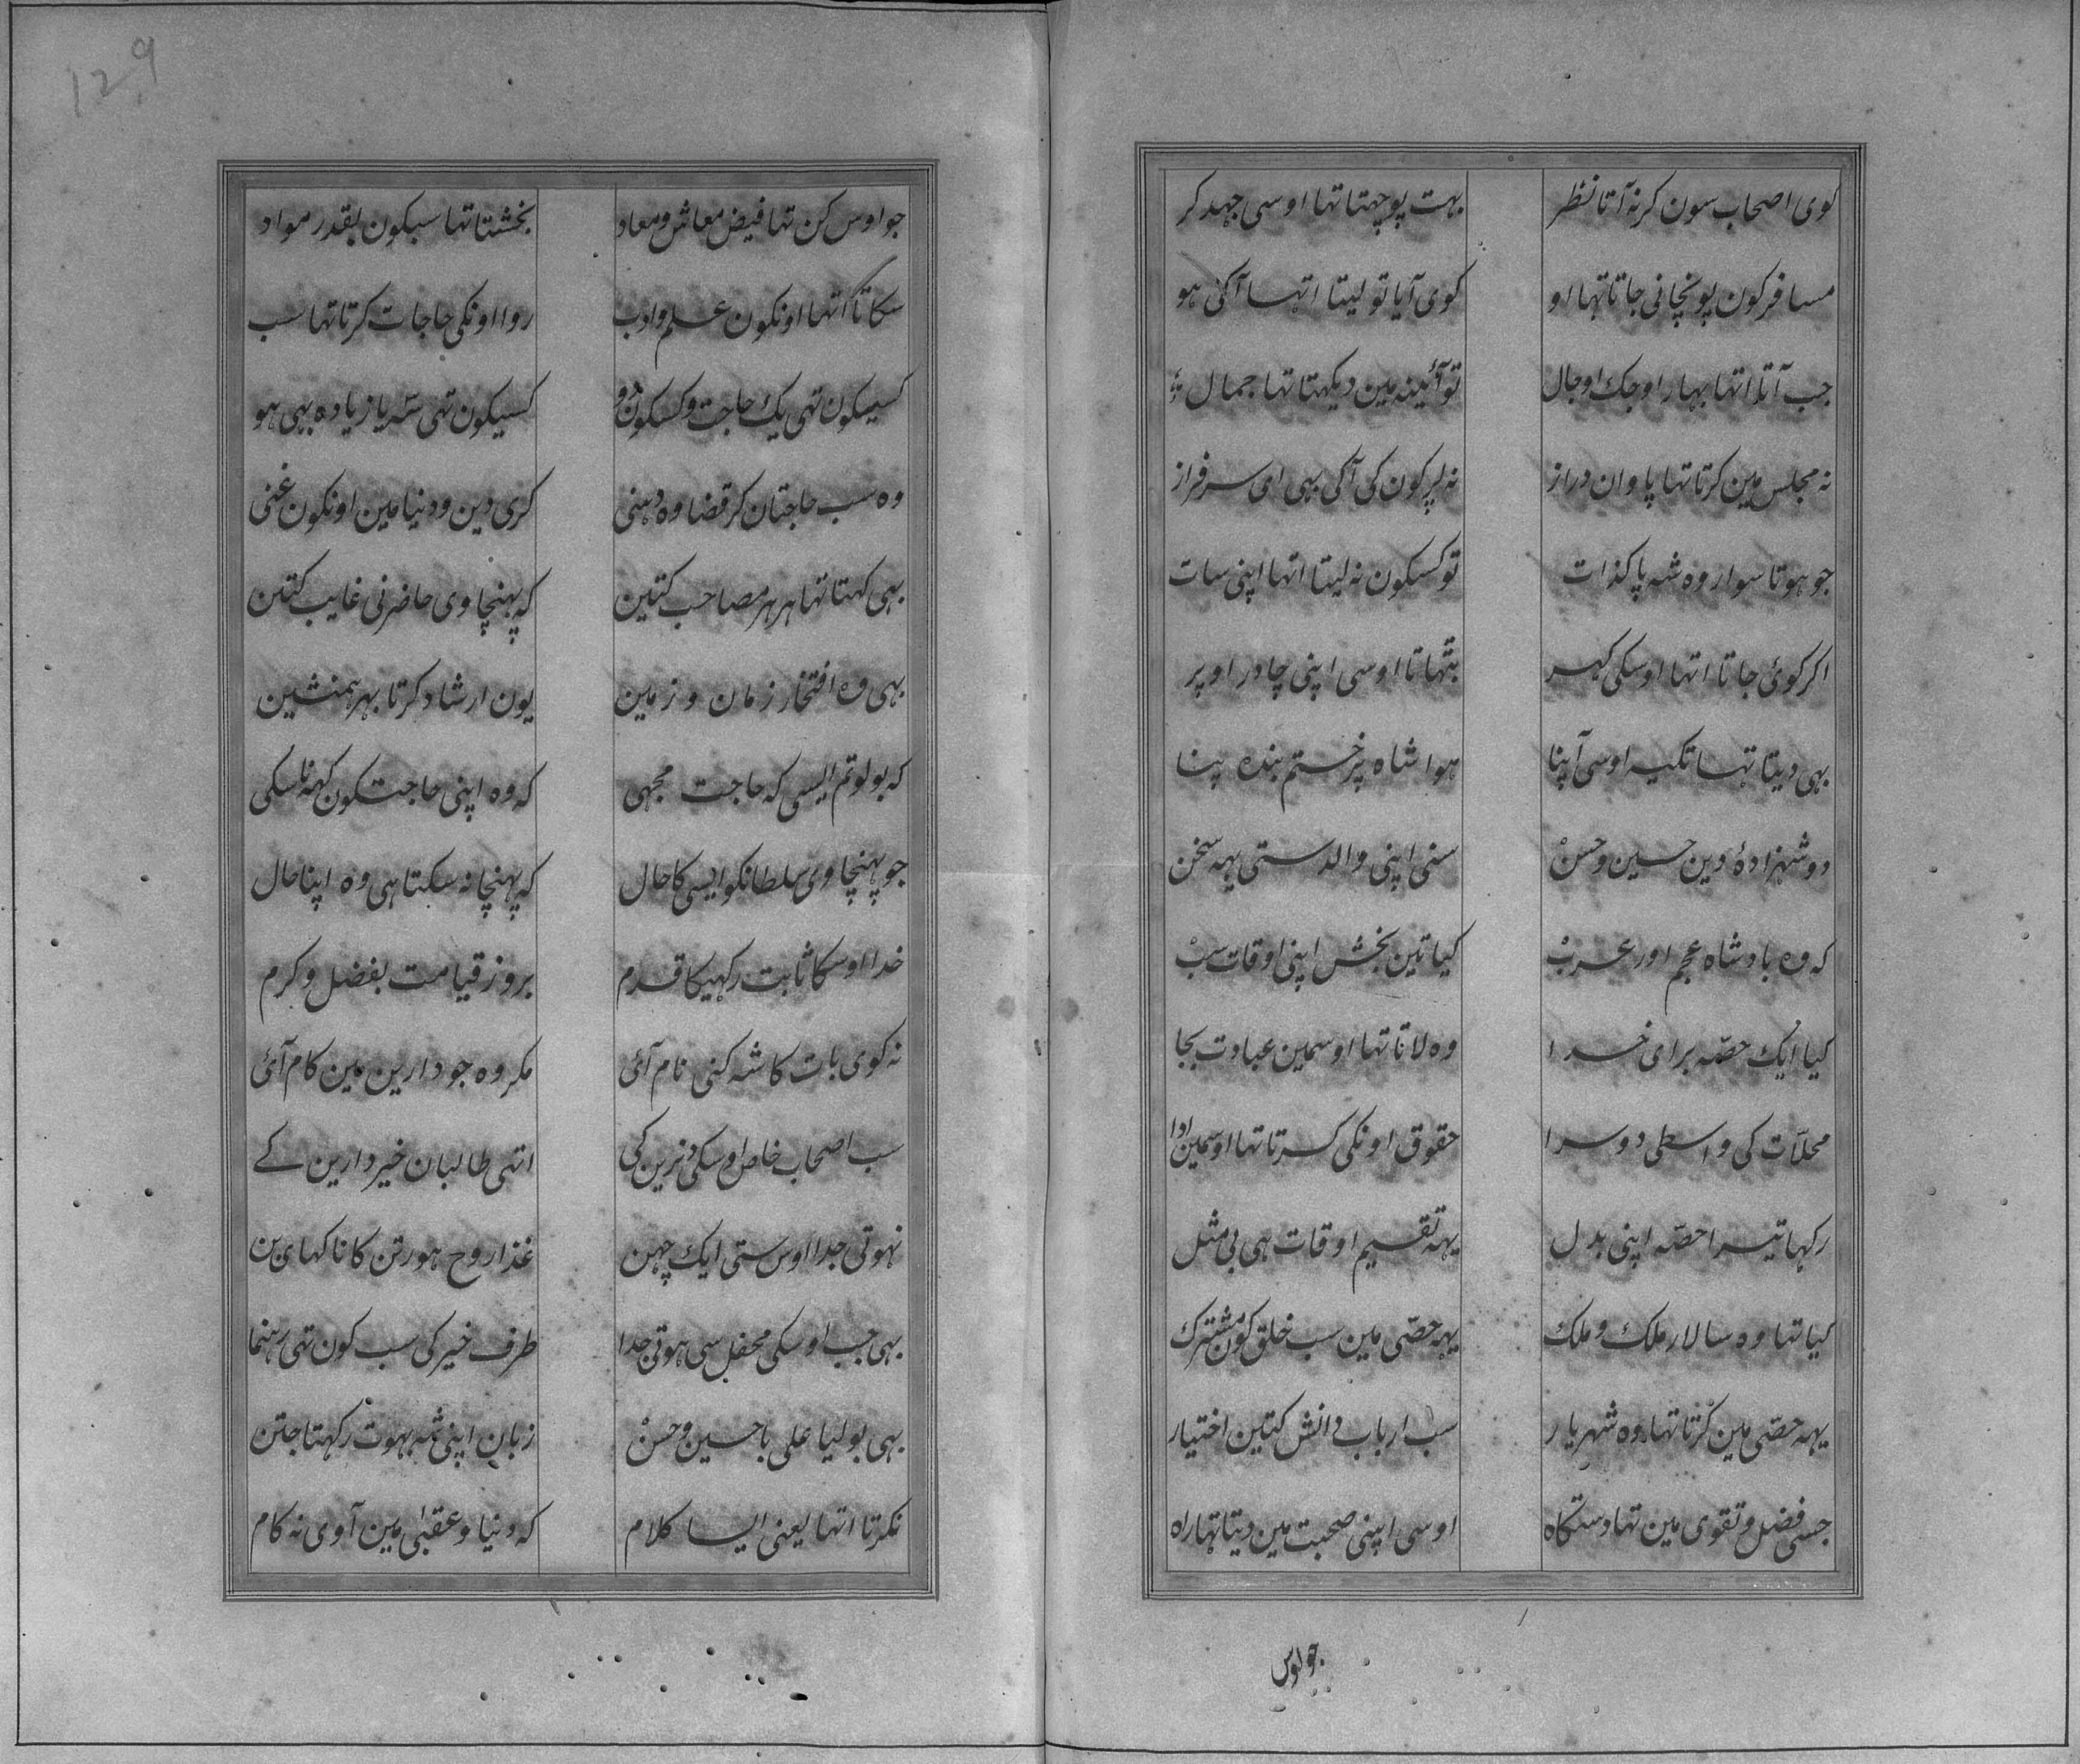 کوی اصحاب سون کر نہ آتا نظر بہت پوچھتا تہا اوسی جہد کر
مسافر کون پونچانی جاتا تہا او کوی آیا تو لیتا اتہا آکی ہو
جب آتا اتہا بہار او جک اوجال تو آئینہ مین دیکہتا تہا جمال
نہ مجلس مین کرتا تہا پاوان دراز نہ لپر کون کی آکی بہی ای سرفراز
جو ہوتا سوار وہ شہ پاکذات تو کسکون نہ لیتا اتہا اپنی سات
اکر کوئ جاتا اتہا اوسکی کہر بتہاتا اوسی اپنی چادر اوپر
بہی دیتا تہا تکیہ اوسی آپنا ہوا شاہ پر ختم بندہ پنا
دو شہزادۂ دین حسین و حسن سنی اپنی والد ستی یہہ سخن
کہ وہ بادشاہ عجم اور عرب کیا تین بخش اپنی اوقات سب
کیا ایک حصّہ برای خدا وہ لاتا تہا اوسمین عبادت بجا
محلّات کی واسطی دوسرا حقوق اونکی کرتا تہا اوسمین ادا
رکہا تیسرا حصّہ اپنی بدل یہہ تقسیم اوقات ہی بی مثل
کیا تہا وہ سالار ملک و ملک یہہ حصّی مین سب خلق کون مشترک
یہہ حصّی مین کرتا تہا وہ شہریار سب ارباب دانش کتین اختیار
جسی فضل و تقوی مین تہا دستکاہ اوسی اپنی صحبت مین دیتا تہا راہ
جو اوس
129
جو اوس کن تہا فیض معاش و معاد بخشتا تہا سبکون بقدر مواد
سکاتا اتہا اونکون علم و ادب روا اونکی حاجات کرتا تہا سب
کسیکون تہی یک حاجت و کسکون دو کسیکون تہی سّہ یا زیادہ بہی ہو
وہ سب حاجتان کر قضا وہ دہنی کری دین و دنیا مین اونکون غنی
بہی کہتا تہا ہر ہر مصاحب کتین کہ پہنچاوی حاضر نی غایب کتین
بہی وہ افتخار زمان و زمین یون ارشاد کرتا بہر ہمنشین
کہ بولو تم ایسی کہ حاجت مجہی کہ وہ اپنی حاجتکون کہہ نا سکی
جو پہنچاوی سلطانکو ایسی کا حال کہ پہنچا نہ سکتا ہی وہ اپنا حال
خدا اوسکا ثابت رکہیکا قدم بروز قیامت بفضل و کرم
نہ کوی بات کا شہ کنی نام آئ مکر وہ جو دارین مین کام آئ
سب اصحاب خاص اوسکی نزدیک کی اتہی طالبان خیر دارین کے
نہوتی جدا اوس ستی ایک چہن غذا روح ہور تن کا نا کہای بن
بہی جب اوسکی محفل سی ہوتی جدا طرف خیر کی سب کون تہی رہنما
بہی بولیا علی با حسین و حسن زبان اپنی شہ بہوت رکہتا جتن
نکرتا اتہا یعنی ایسا کلام کہ دنیا و عقبیٰ مین آوی نہ کام